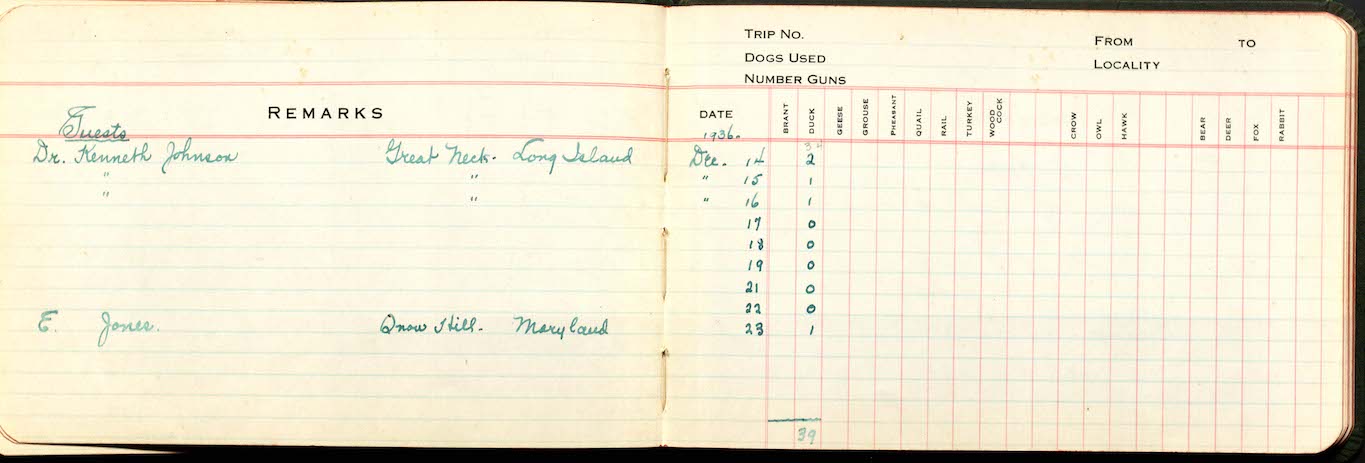 REMARKS
Guests
Dr. Kenneth Johnson Great Neck. Long Island
" "
" "
E. Jones. Snow Hill. Maryland
TRIP NO. FROM TO
DOGS USED LOCALITY
NUMBER GUNS
DATE BRANT DUCK GEESE GROUSE PHEASANT QUAIL RAIL TURKEY WOOD COCK CROW OWL HAWK BEAR DEER FOX RABBIT
1936.
34
Dec. 14 2
" 15 1
" 16 1
17 0
18 0
19 0
21 0
22 0
23 1
39